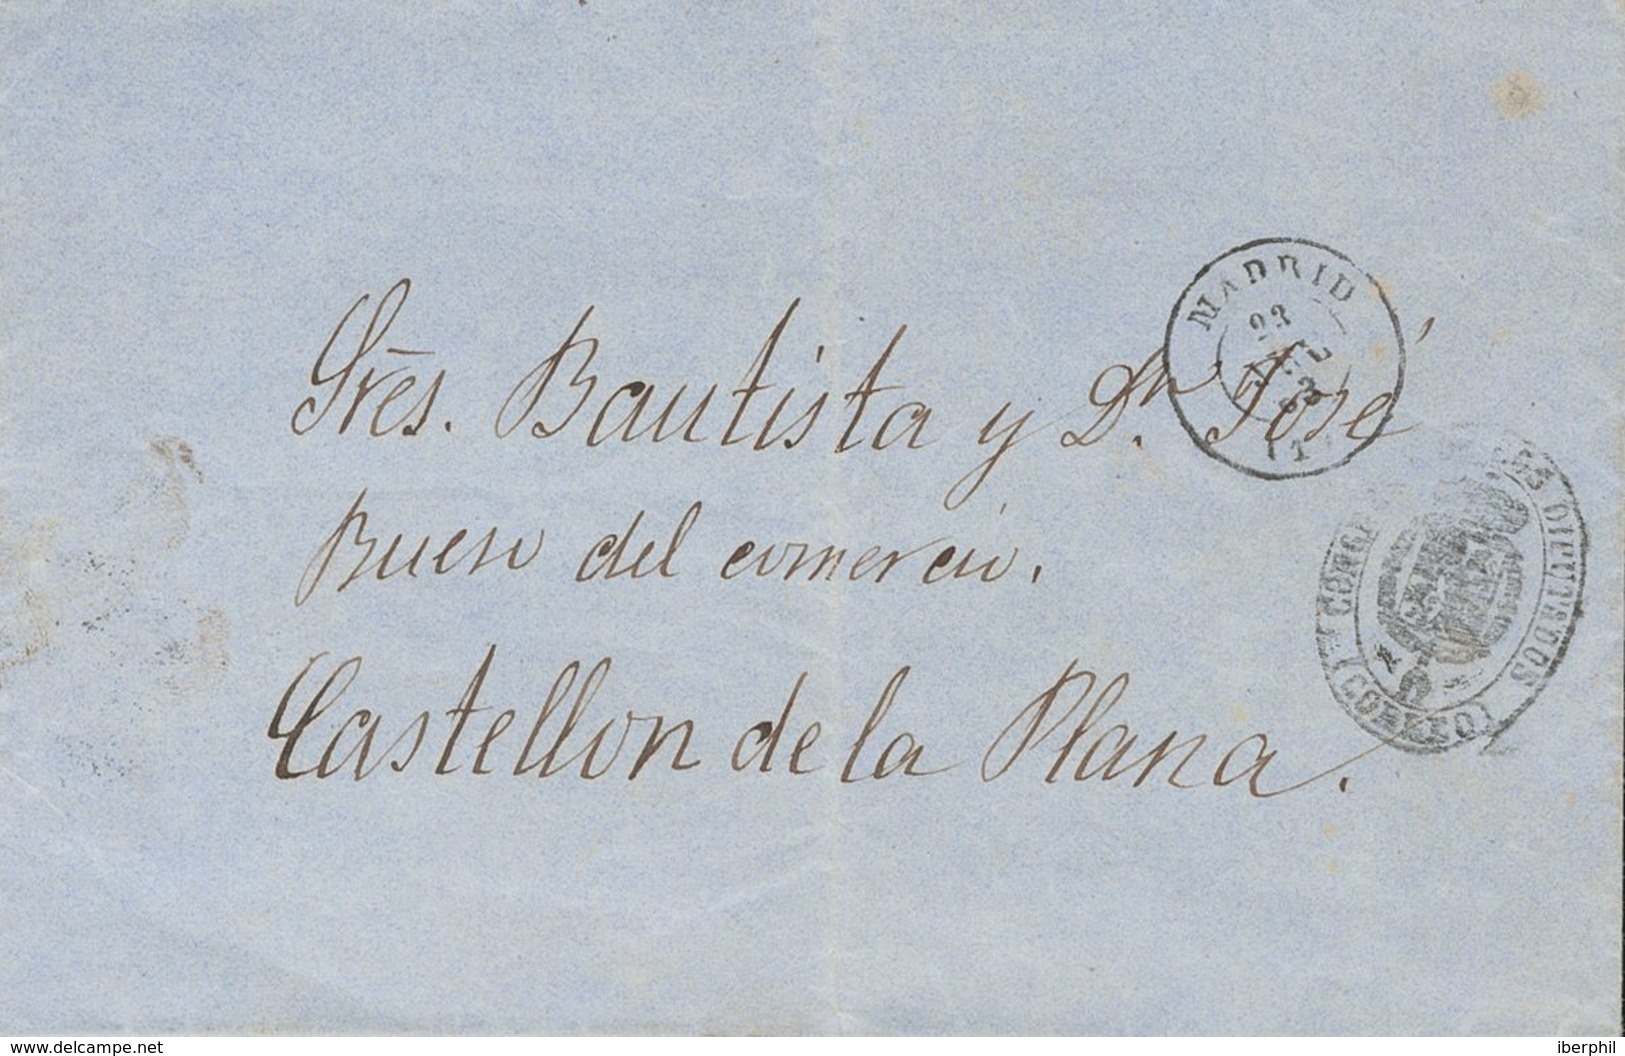 MADRID
23
JUL
63
(1)
Sres. Bautista y Dn. José
Bueso del comercio.
Castellon de la Plana.
CONGR DIPUTADOS
CORREO
www.delcampe.net
iberphil